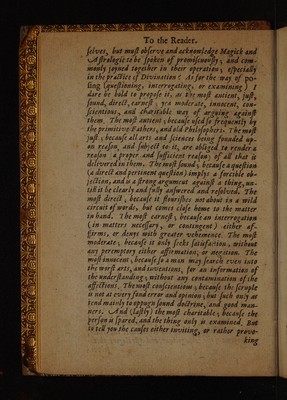 To the Reader.
selves, but must observe and acknowledge Magick and
Astrologie to be spoken of promiscuously, and com-
monly joyned together in their operation, especially
in the practice of Divination? As for the way of po-
sing (questioning, interrogating, or examining) I
dare be bold to propose it, as the most antient, just,
sound, direct, earnest, yea moderate, innocent, con-
scientious, and charitable way of arguing against
them. The most antient, because used so frequently by
the primitive Fathers, and old Philosophers. The most
just, because all arts and sciences being founded up-
on reason, and subject to it, are obliged to render a
reason (a proper and sufficient reason) of all that is
delivered in them. The most sound, because a question
(a direct and pertinent question) implys a forcible ob-
jection, and is a strong argument against a thing, un-
till it be clearly and fully answered and resolved. The
most direct, because it flourishes not about in a wild
circuit of words, but comes close home to the matter
in hand. The most earnest, because an interrogation
(in matters necessary, or contingent) either af-
firms, or denys with greater vehemence. The most
moderate, because it only seeks satisfaction, without
any peremptory either affirmation, or negation. The
most innocent, because so a man may search even into
the worst arts, and inventions, for an information of
the understanding, without any contamination of the
affections. The most conscientious, because the scruple
is not at every fond error and opinion, but such only as
tend mainly to oppugn sound doctrine, and good man-
ners. And (lastly) the most charitable, because the
person is spared, and the thing only is examined. But
to tell you the causes either inviting, or rather provo-
king